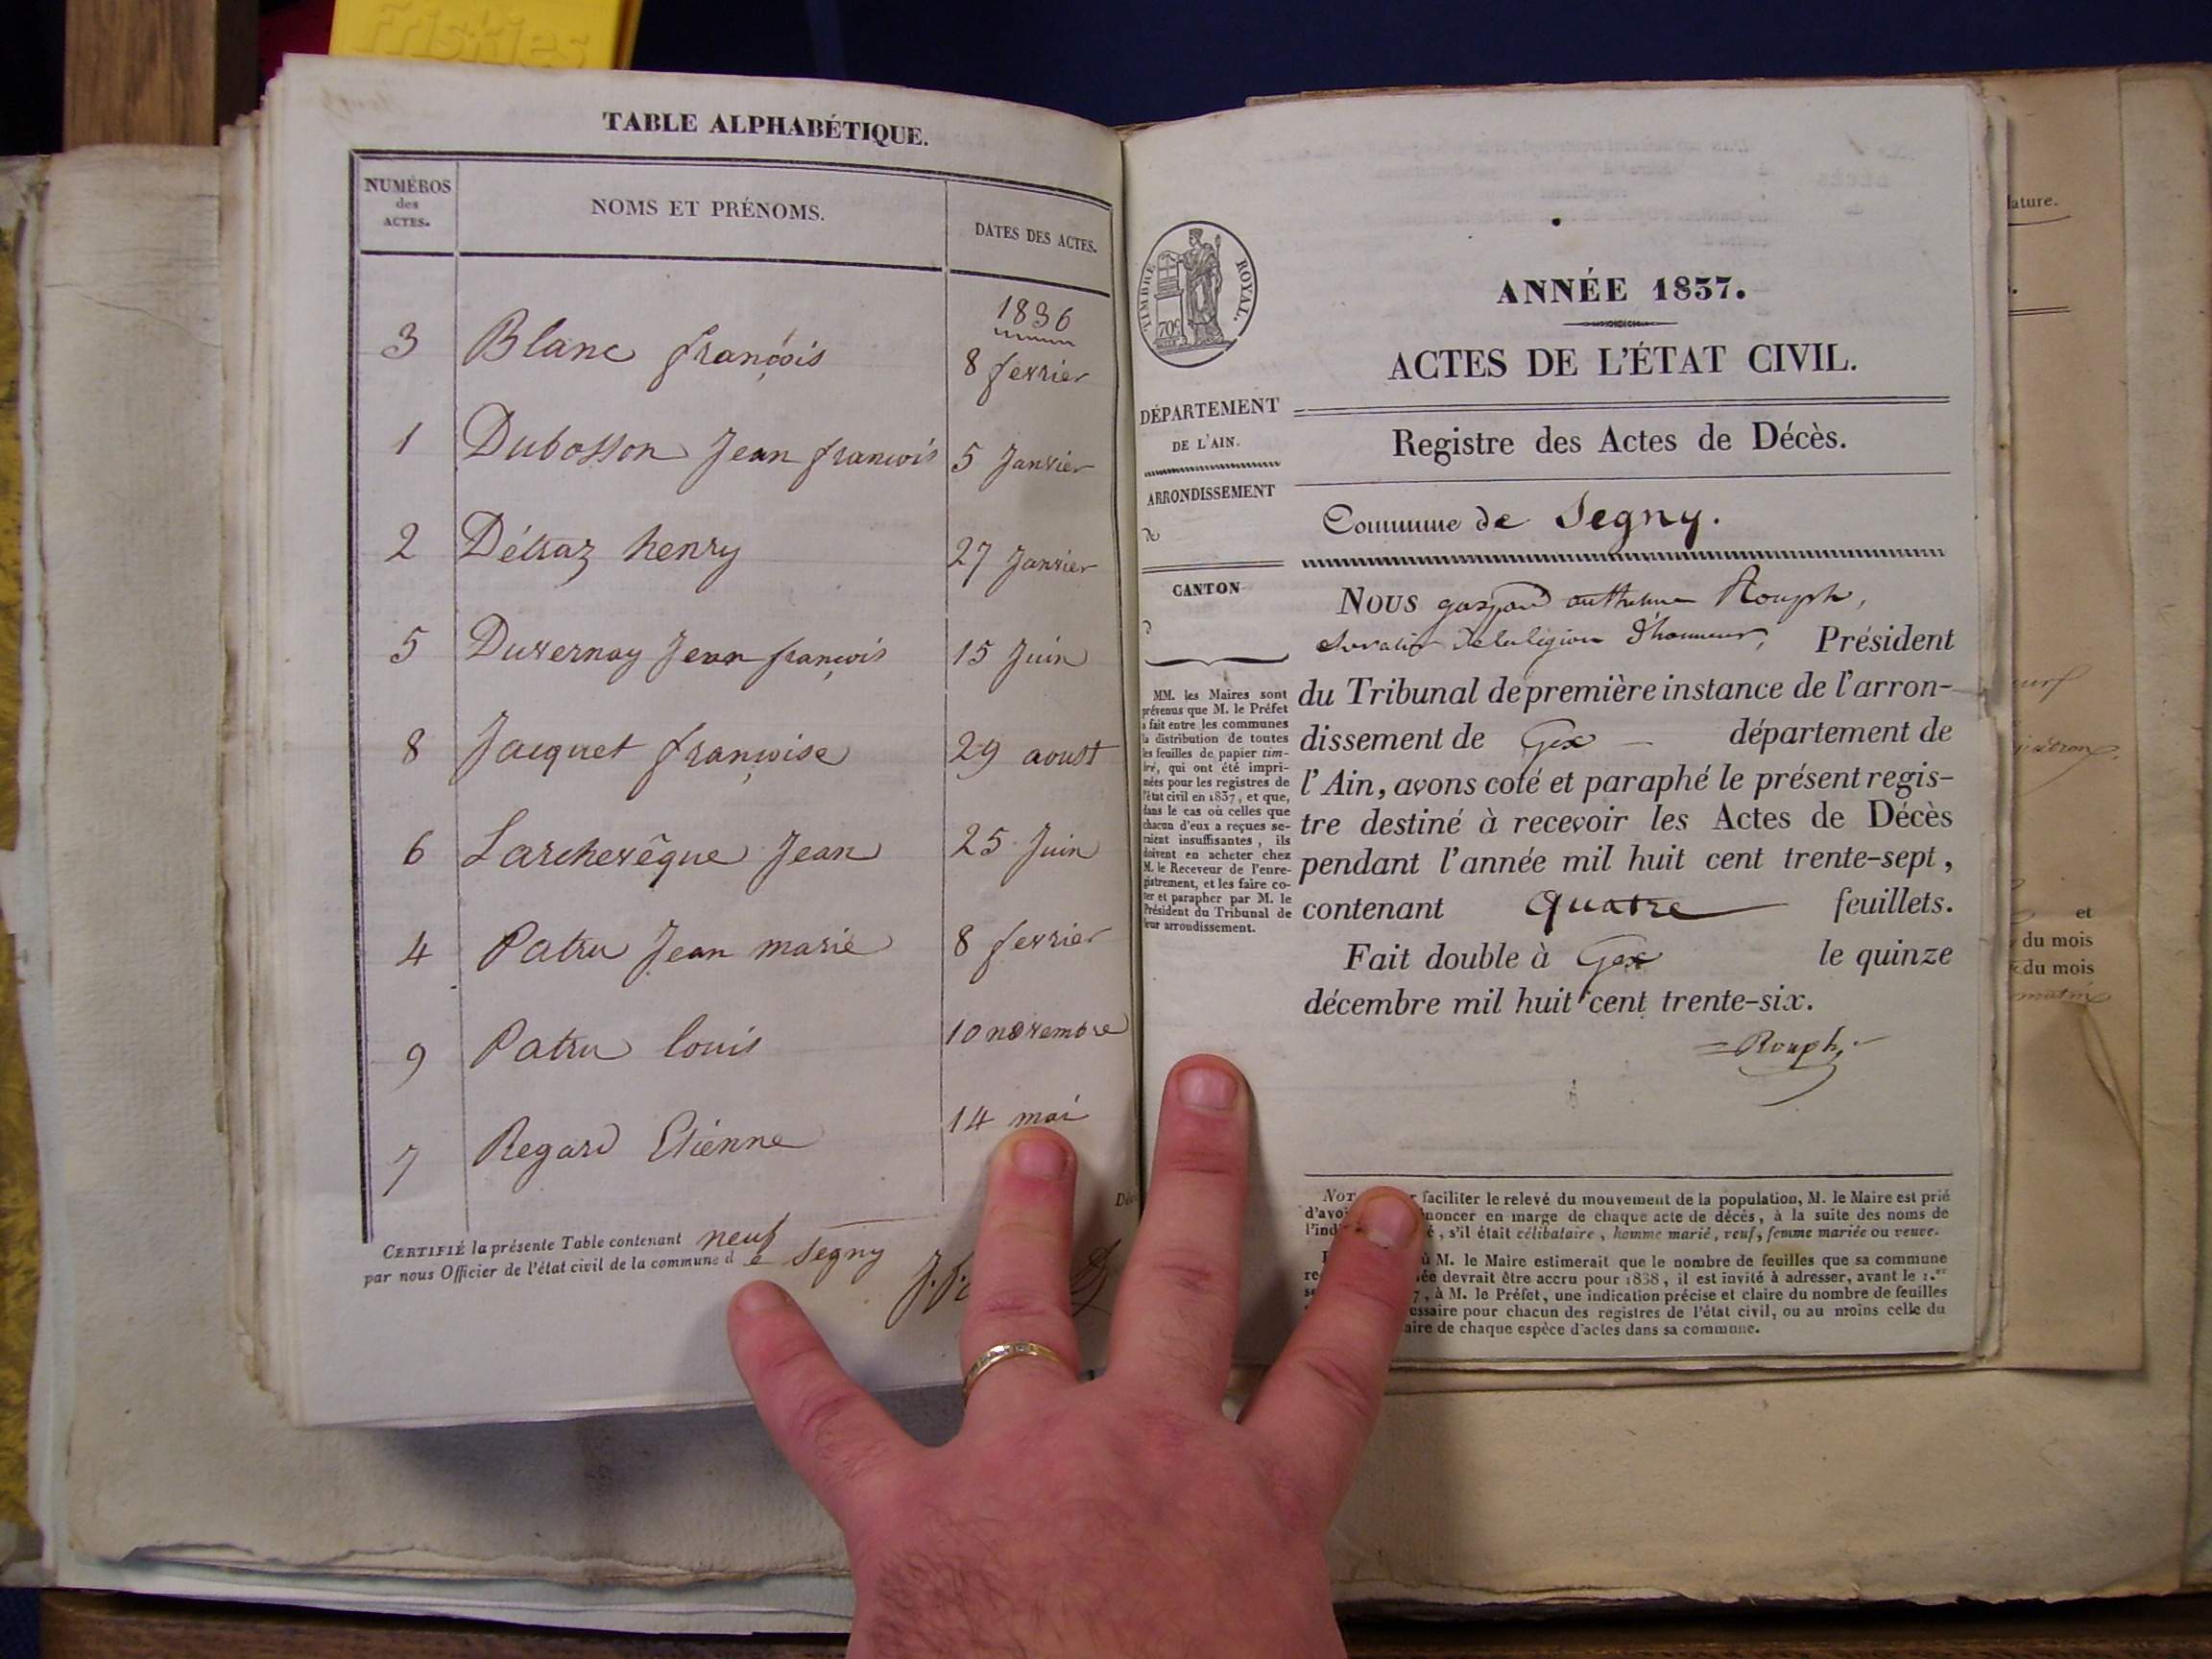 Friskies
TABLE ALPHABÉTIQUE.
NUMÉROS des ACTES.
NOMS ET PRÉNOMS.
DATES DES ACTES.
1836
3 Blanc françois 8 fevrier
1 Dubosson Jean francois 5 Janvier
2 Détraz henry 27 Janvier
5 Duvernay Jean françois 15 Juin
8 Jacquet françoise 29 aoust
6 Larchevêque Jean 25 Juin
4 Patru Jean marie 8 fevrier
9 Patru louis 10 novembre
7 Regard Etienne 14 mai
CERTIFIÉ la présente Table contenant neuf
par nous Officier de l'état civil de la commune de Segny
TIMBRE ROYAL.
70c
DÉPARTEMENT
DE L'AIN.
ARRONDISSEMENT
de
CANTON
d
MM. les Maires sont
prévenus que M. le Préfet
a fait entre les communes
la distribution de toutes
les feuilles de papier tim-
bré, qui ont été impri-
mées pour les registres de
l'état civil en 1837, et que,
dans le cas où celles que
chacun d'eux a reçues se-
raient insuffisantes, ils
doivent en acheter chez
M. le Receveur de l'enre-
gistrement, et les faire co-
ter et parapher par M. le
Président du Tribunal de
leur arrondissement.
ANNÉE 1837.
ACTES DE L'ÉTAT CIVIL.
Registre des Actes de Décès.
Commune de Segny.
NOUS gaspard anthelme Rouph,
chevalier de la légion d'honneur, Président
du Tribunal de première instance de l'arron-
dissement de Gex département de
l'Ain, avons coté et paraphé le présent regis-
tre destiné à recevoir les Actes de Décès
pendant l'année mil huit cent trente-sept,
contenant quatre feuillets.
Fait double à Gex le quinze
décembre mil huit cent trente-six.
Rouph
faciliter le relevé du mouvement de la population, M. le Maire est prié
noncer en marge de chaque acte de décès, à la suite des noms de
s'il était célibataire, homme marié, veuf, femme mariée ou veuve.
M. le Maire estimerait que le nombre de feuilles que sa commune
devrait être accru pour 1838, il est invité à adresser, avant le 1.er
à M. le Préfet, une indication précise et claire du nombre de feuilles
pour chacun des registres de l'état civil, ou au moins celle du
de chaque espèce d'actes dans sa commune.
ature.
et
du mois
du mois